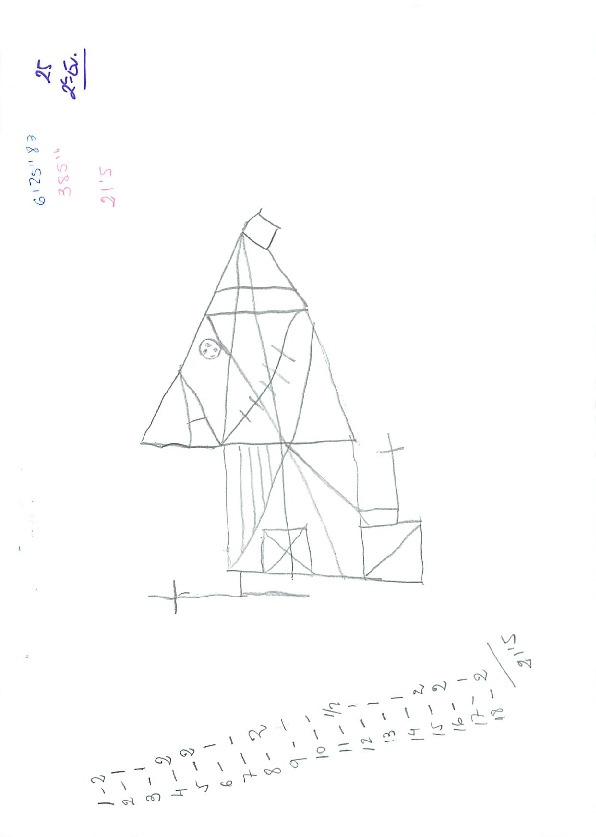 25
6'25"83
385"
21'5
1-2
2-1
3-1
4-2
5-2
6-1
7-1
8-2
9-1
10-1
11-1/2
12-1
13-1
14-1
15-2
16-2
17-1
18-2
21'5